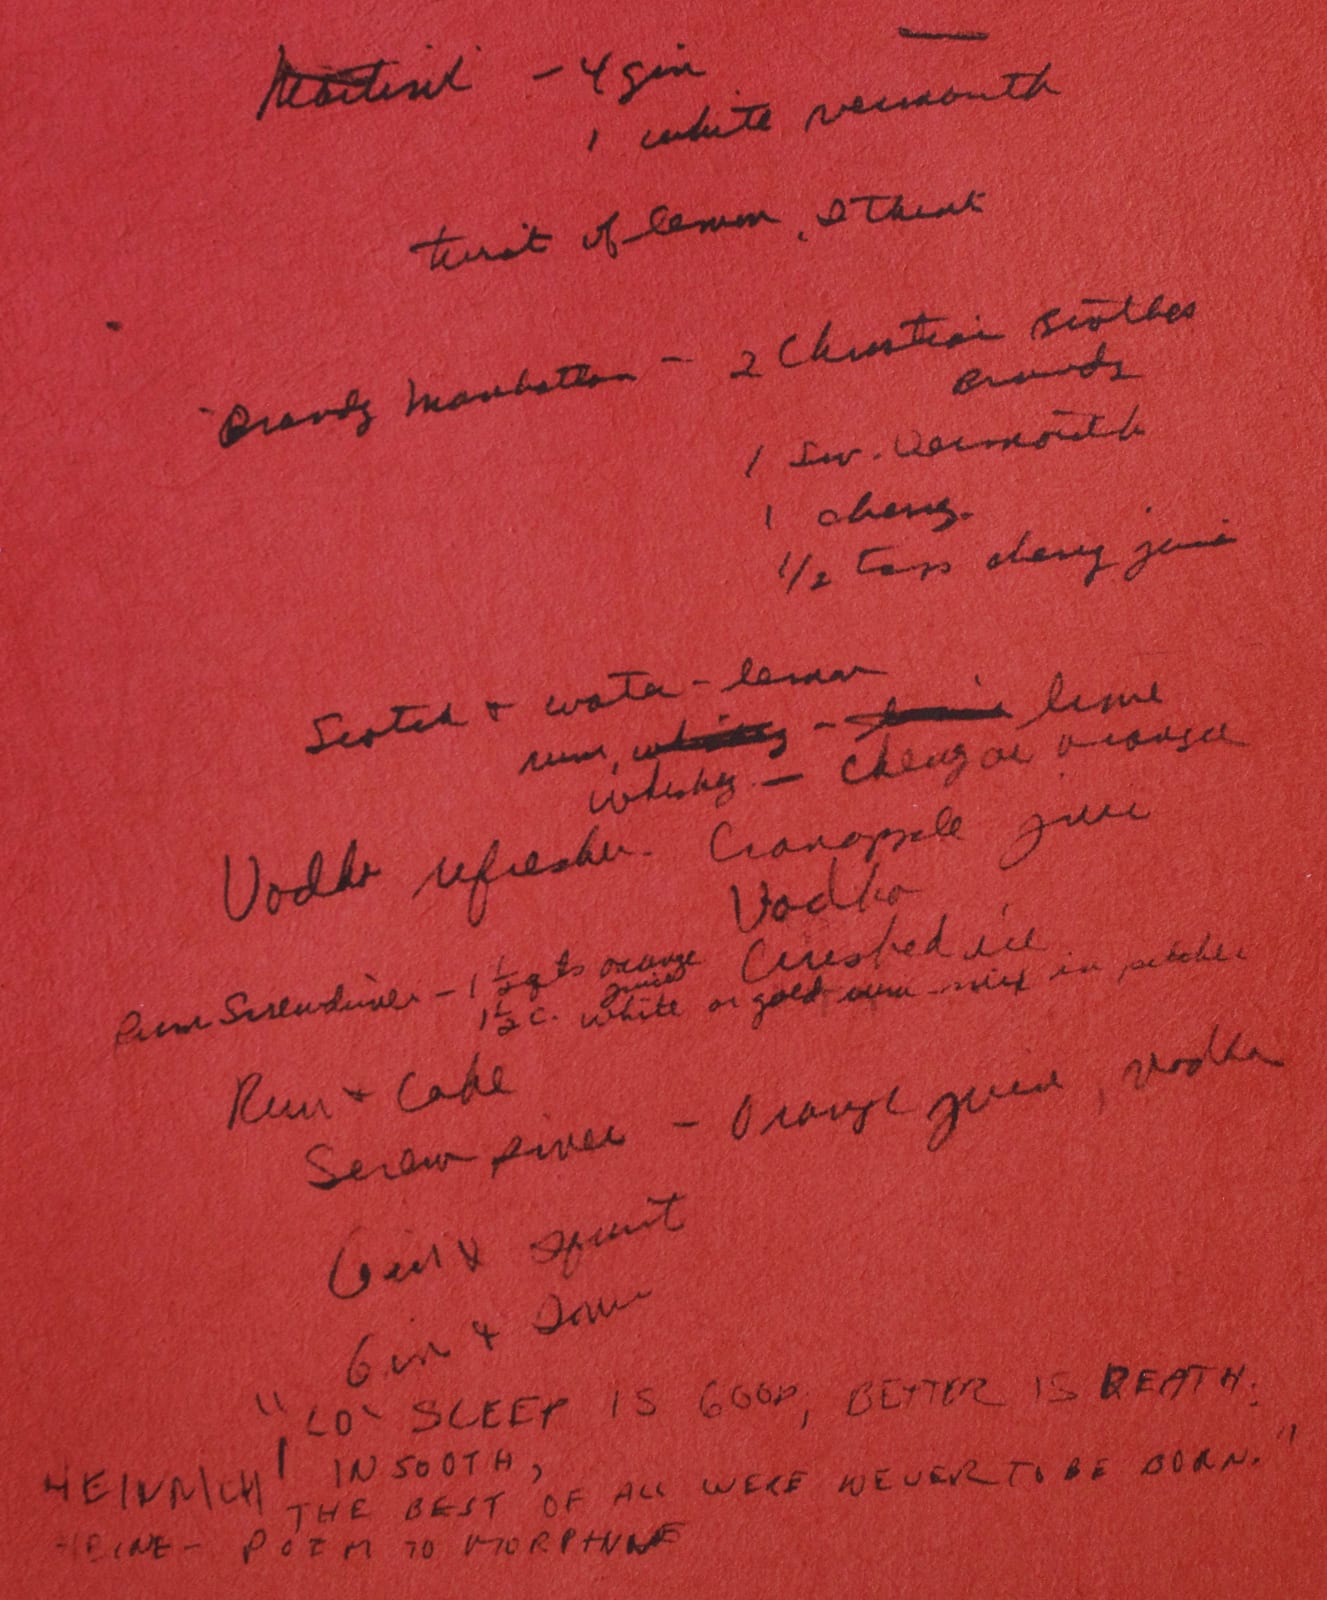 Martini - 4 gin
1 white vermouth
twist of lemon, I think
Brandy Manhattan - 2 Christian Brothers
Brandy
1 Sw. Vermouth
1 cherry
1/2 tsps cherry juice
Scotch & water - lemon
rum, whiskey - lime
whiskey - cherry or orange
Vodka refresher - Cranapple juice
Vodka
Crushed ice
Rum Screwdriver - 1 1/2 qts orange juice
1 1/2 c. white or gold rum - mix in pitcher
Rum & Coke
Screwdriver - Orange juice, vodka
Gin &
Gin &
"LO SLEEP IS GOOD, BETTER IS DEATH:
IN SOOTH,
THE BEST OF ALL WERE NEVER TO BE BORN."
HEINRICH
HEINE - POEM TO MORPHINE